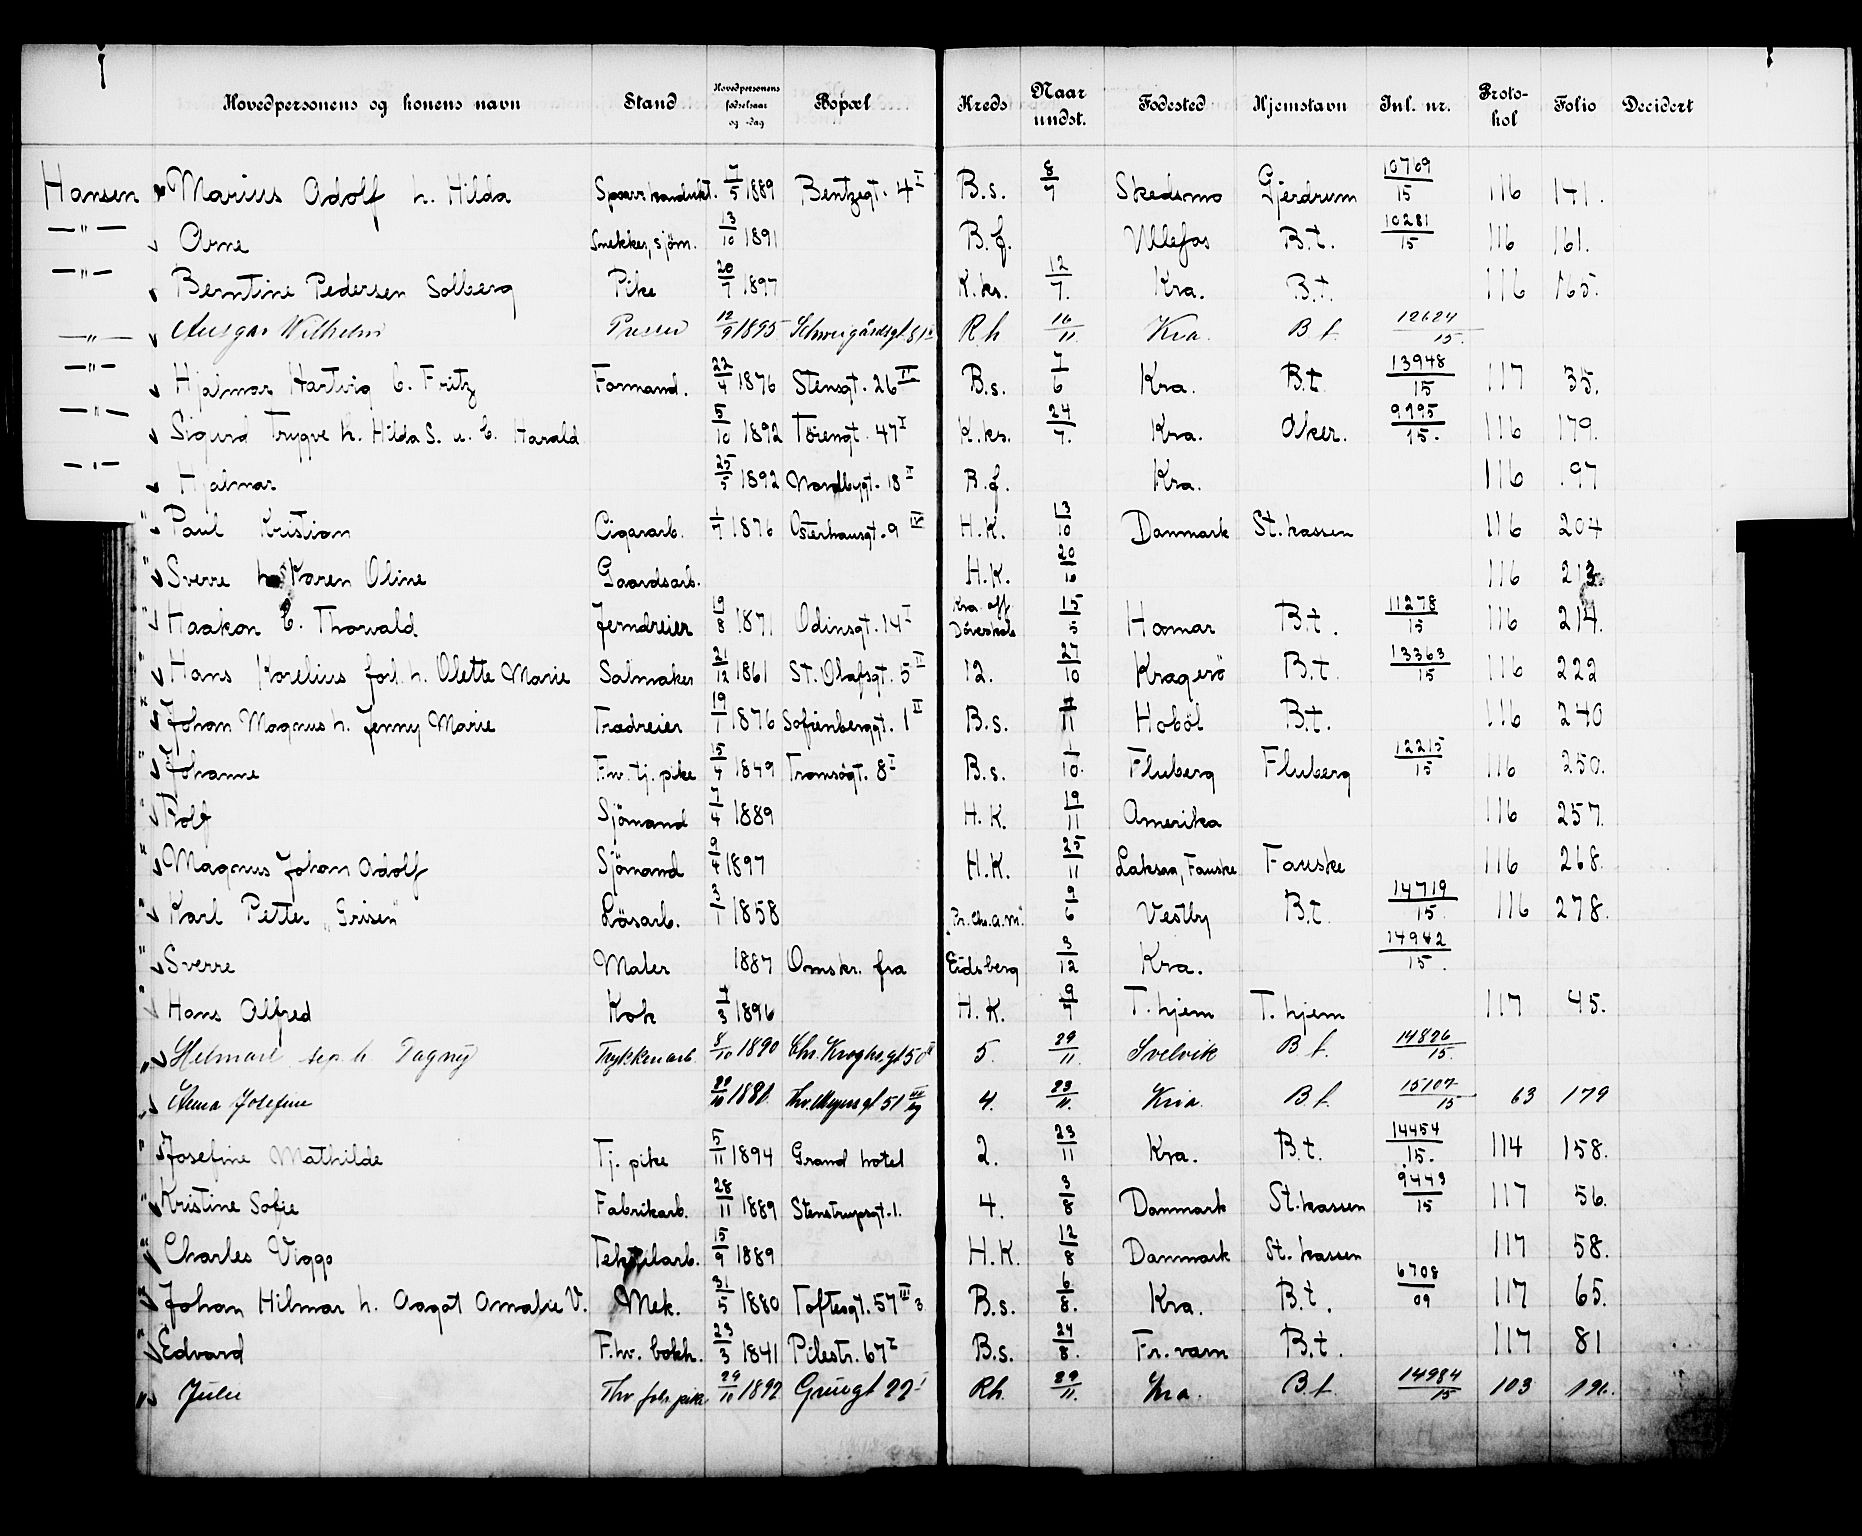 Hovedpersonens og konens navn Stand Hovedpersonens fødselsaar og -dag Bopæl Kreds Naar undst. Fødested Hjemstavn Inl. nr. Proto-kol Folio Decidert
Hansen Marius Adolf h. Hilda Sporv.konduct. 7/5 1889 Bentzegt. 4 I B.s. 8/7 Skedsmo Gjerdrum 10769/15 116 141.
— " — Arne Snekker, sjøm. 13/10 1891 B.f. Ullefos B.t. 10281/15 116 161.
— " — Berntine Pedersen Solberg Pike 20/7 1897 K.ks. 12/7. Kra. B.t. 116 165.
— " — Ansgar Wilhelm 12/9 1895 Schweigårdsgt 81 R.h 16/11 Kria. B.t. 12624/15.
— " — Hjalmar Hartvig C. Fritz Formand. 22/4 1876 Stensgt. 26 B.s. 7/6 Kra. B.t 13948/15 117 35.
— " — Sigurd Trygve h. Hilda S. u. C. Harald 5/10 1892 Töiengt. 47 I K.ks. 24/7. Kra. Aker. 9995/15. 116 179.
— " — Hjalmar 25/5 1892 Nordbygt. 18 II B.f. Kra. 116 197
" Paul Kristian Cigararb. 1/7 1876 Osterhausgt. 9 IV H.K. 13/10 Danmark St.kassen 116 204
" Sverre h. Karen Oline Gaardsarb. H.K. 20/10 116 213
" Haakon C. Thorvald Jerndreier 19/8 1871 Odinsgt. 14 I Kra. off. Döveskole 15/5 Hamar B.t. 11278/15 116 214.
" Hans Korelius forl. h. Olette Marie Salmaker 21/12 1861 St. Olafsgt. 5 II 12. 27/10 Kragerö B.t. 13363/15 116 222
" Johan Magnus h. Jenny Marie Trædreier 19/1 1876 Sofienberggt. 1 II B.s. 4/11 Hoböl B.t. 116 240
" Johanne F.hv. tj. pike 15/4 1849 Tromsögt. 8 I B.s. 1/10. Fluberg Fluberg 12215/15 116 250.
" Rolf Sjömand 7/4 1889 H.K. 19/11 Amerika 116 257.
" Magnus Johan Adolf Sjömand 9/4 1897 H.K. 25/11 Laksaa, Fauske Fauske 116 268.
" Karl Petter „Grisen" Lösarb. 3/1 1858 9/6 Vestby B.t. 14719/15. 116 278.
" Sverre Maler 1887 Omskr. fra Eidsberg 3/12 Kra. 14942/15.
" Hans Alfred Kok 4/3 1896 H.K. 9/7 T.hjem T.hjem 117 45.
" Helmart sep. h Dagny Trykkeriarb. 8/10 1890 Chr. Kroghs gt 50 II 5. 29/11. Svelvik B.t. 14826/15.
" Anna Josefine 29/10 1881. Thv. Meyers gt 51 III 4. 23/11. Kria. B.t. 15107/15 63 179
" Josefine Mathilde Tj. pike 5/11 1894 Grand hotel 2. 23/11 Kra. B.t. 14454/15. 114 158.
" Kristine Sofie Fabrikarb. 28/11 1889 Stenstrupsgt. 1. 4. 3/8 Danmark St.kassen 9443/15 117 56.
" Charles Viggo Tekstilarb. 15/9 1889 H.K. 12/8 Danmark St. kassen 117 58.
" Johan Hilmar h. Aagot Amalie V. Mek. 31/5 1880 Toftesgt. 57 III 3 B.s. 6/8. Kra. B.t. 6708/09 117 65.
" Edvard F.hv. bokh. 23/3 1841 Pilestr. 67 I B.s. 24/8. Fr.værn B.t. 117 81
" Julie 29/11 1892 Grüegt 22 I Rh. 29/11. Kra. B.t 14984/15 103 196.